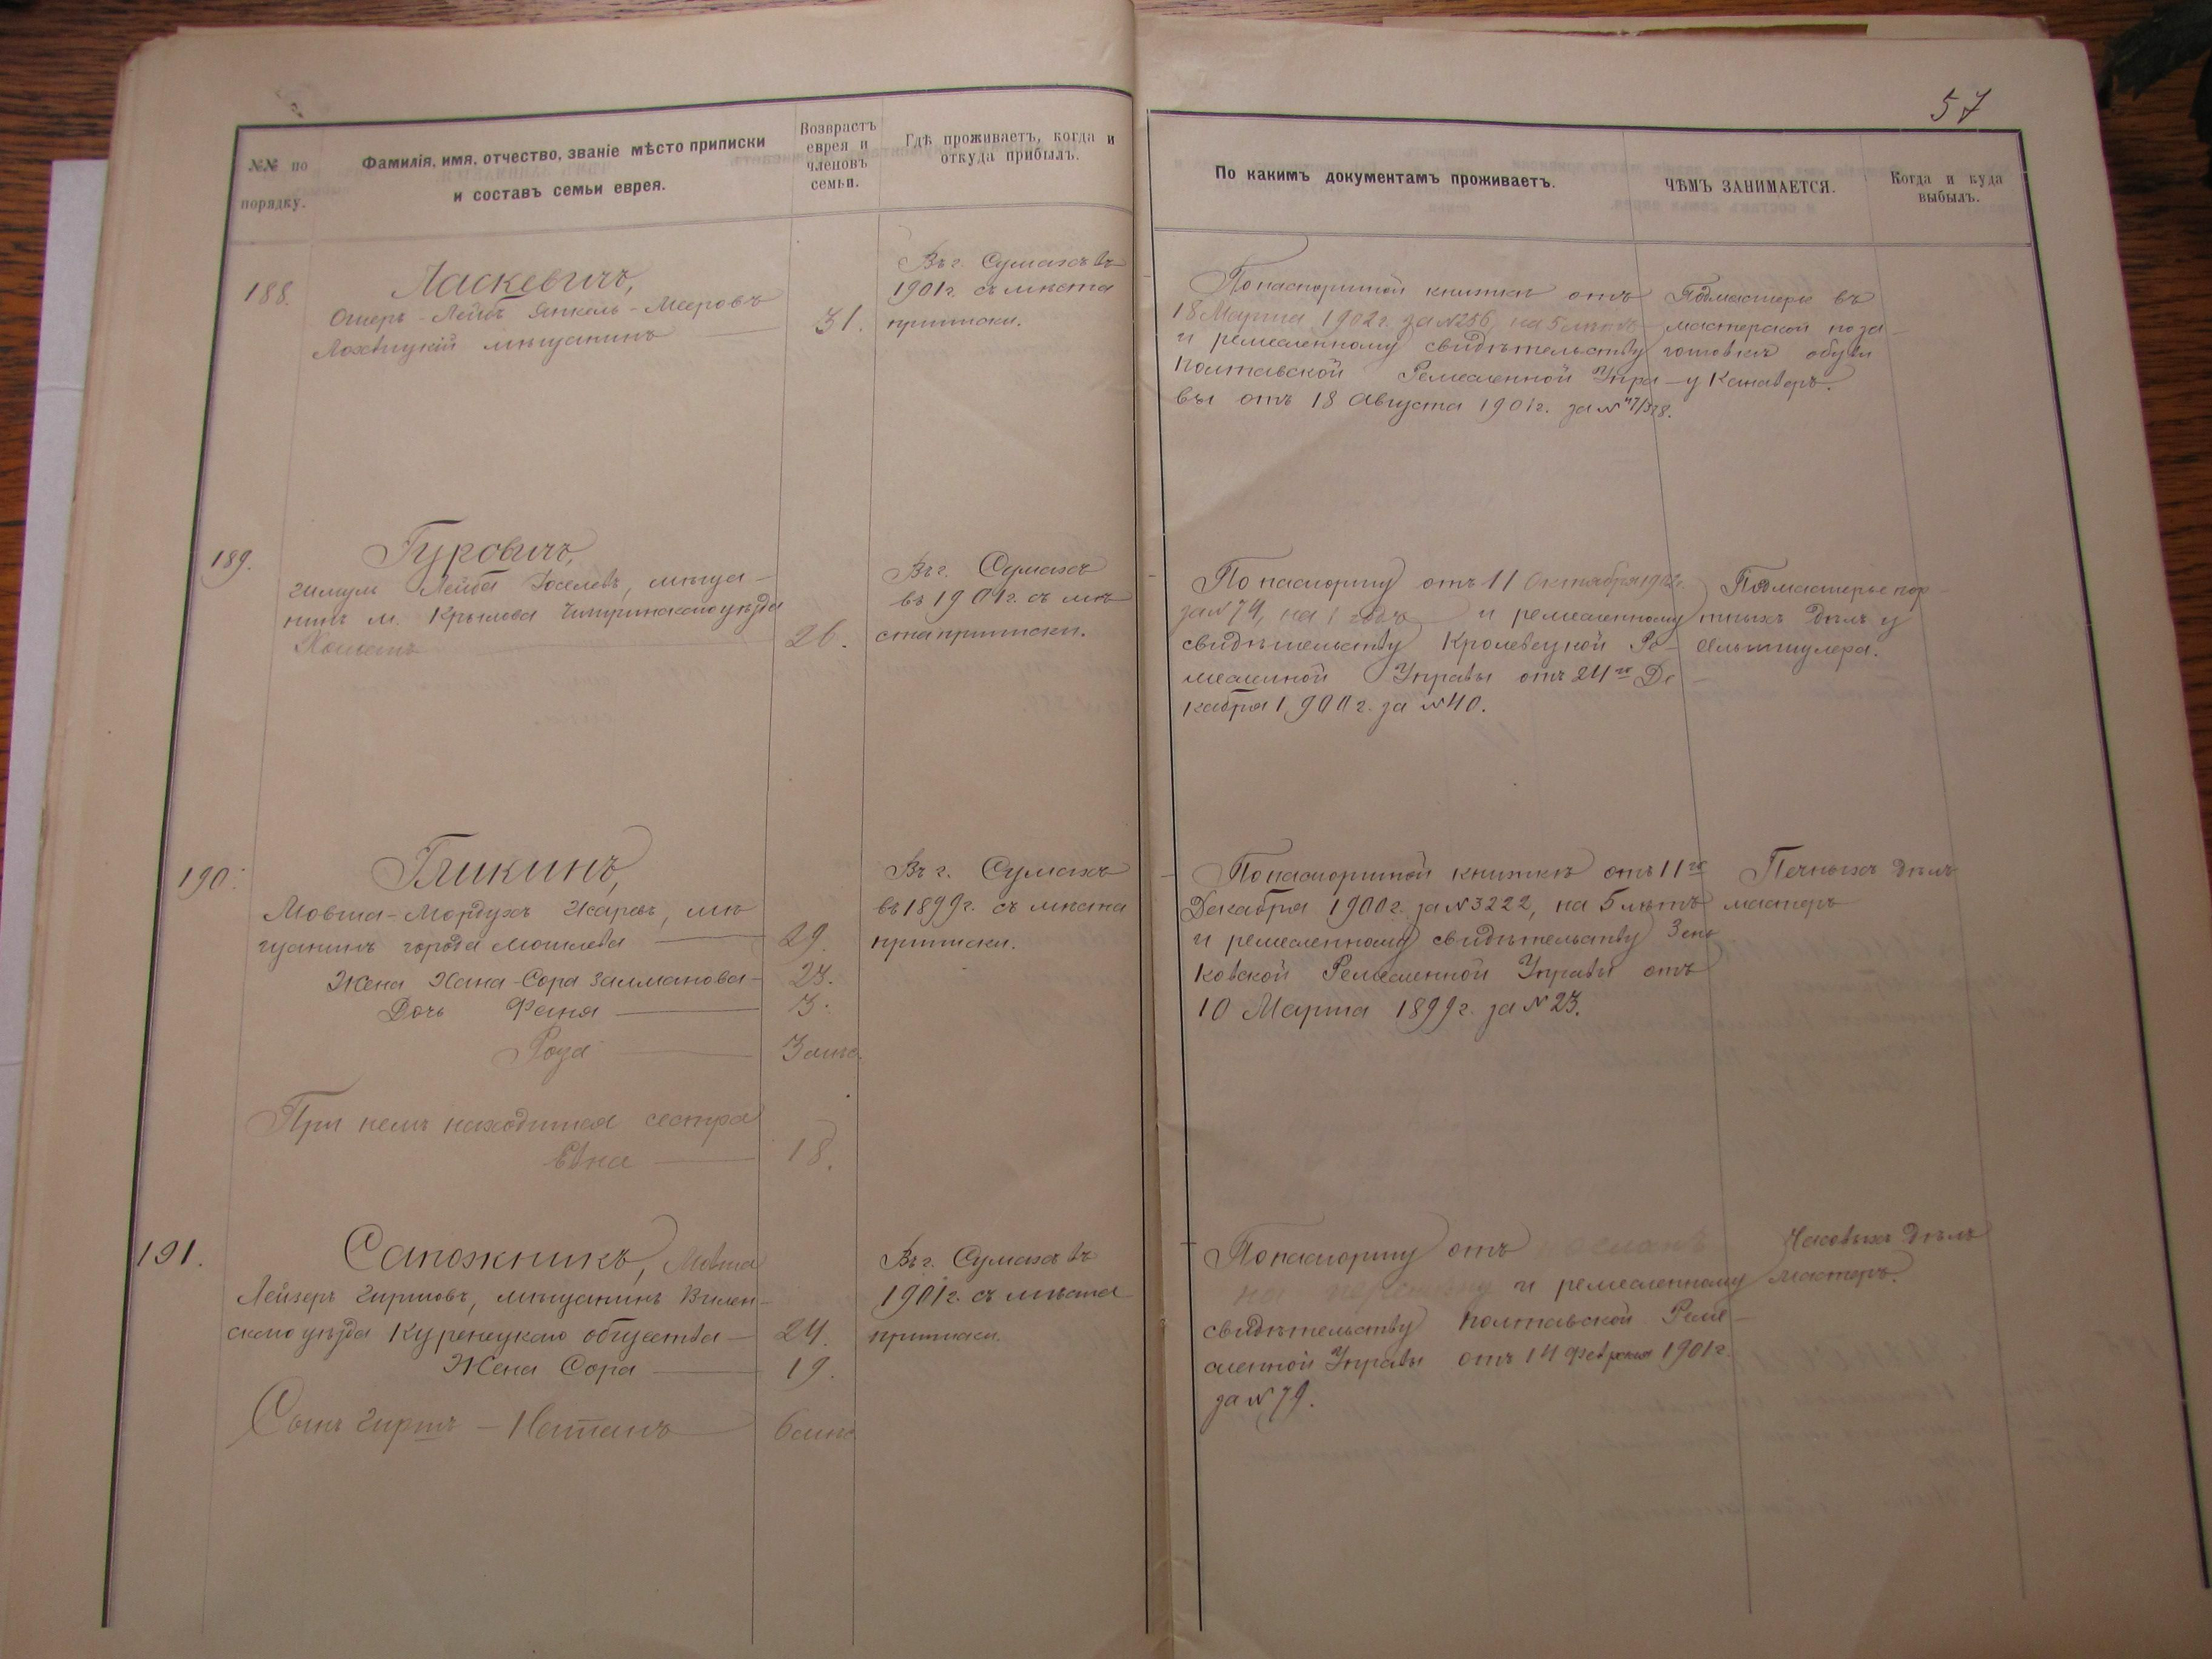 57
№№ по порядку.
Фамилія, имя, отчество, званіе мѣсто приписки
и составъ семьи еврея.
Возврастъ
еврея и
членовъ
семьи.
Гдѣ проживаетъ, когда и
откуда прибылъ.
По какимъ документамъ проживаетъ.
ЧѢМЪ ЗАНИМАЕТСЯ.
Когда и куда
выбылъ.
188.
Ласкевичъ,
Ошеръ-Лейбъ Янкель-Мееровъ
Лохвицкій мѣщанинъ
31.
Въ г. Сумахъ въ
1901 г. съ мѣста
приписки.
По паспортной книжкѣ отъ
18 Марта 1902 г. за №256, на 5 лѣтъ
и ремесленному свидѣтельству
Полтавской Ремесленной Упра-
вы отъ 18 Августа 1901 г. за №
Подмастерье въ
мастерской по за-
готовкѣ обуви
у
189.
Гуровичъ,
Лейба Іоселевъ, мѣща-
нинъ м. Крылова Чигиринскаго уѣзда
26.
Въ г. Сумахъ
въ 1901 г. съ мѣ
ста приписки.
По паспорту отъ 11 Октября 1902 г.
за №79, на 1 годъ и ремесленному
свидѣтельству Кролевецкой Ре-
месленной Управы отъ 24го Де-
кабря 1900 г. за №40.
Подмастерье пор-
тныхъ дѣлъ у
Альтшулера.
190.
Гликинъ,
Мовша-Мордухъ мѣ
щанинъ города Могилева
29.
Жена Хана-Сора Залманова-
23.
Дочь Феня
3.
Роза
3 мѣс.
При немъ находится сестра
18.
Въ г. Сумахъ
въ 1899 г. съ мѣста
приписки.
По паспортной книжкѣ отъ 11го
Декабря 1900 г. за №3222, на 5 лѣтъ
и ремесленному свидѣтельству Зень
ковской Ремесленной Управы отъ
10 Марта 1899 г. за №23.
Печныхъ дѣлъ
мастеръ
191.
Сапожникъ, Мовша
Лейзеръ Гиршовъ, мѣщанинъ Вилен-
скаго уѣзда Куренецкаго общества-
24.
Жена Сора
19.
Сынъ Гиршъ-Натанъ
6 мѣс.
Въ г. Сумахъ въ
1901 г. съ мѣста
приписки.
По паспорту отъ
и ремесленному
свидѣтельству Полтавской Реме-
сленной Управы отъ 14 Февраля 1901 г.
за №79.
Часовыхъ дѣлъ
мастеръ.